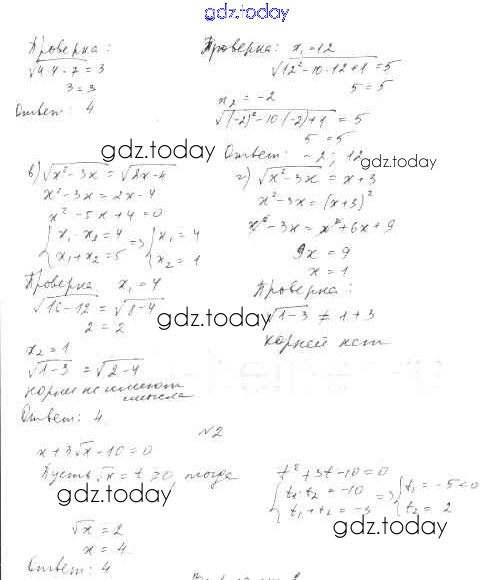 gdz.today
Проверка:
√4·4-7 = 3
3 = 3
Ответ: 4
Проверка: x₁ = 12
√12²-10·12+1 = 5
5 = 5
x₂ = -2
√(-2)²-10·(-2)+1 = 5
5 = 5
Ответ: -2; 12
gdz.today
gdz.today
в) √x²-3x = √2x-4
x²-3x = 2x-4
x²-5x+4=0
{x₁·x₂=4
x₁+x₂=5 => {x₁=4
x₂=1
Проверка x₁=4
√16-12 = √8-4
2 = 2
x₂=1
√1-3 = √2-4
корни не имеют
смысла
Ответ: 4.
г) √x²-3x = x+3
x²-3x=(x+3)²
x²-3x = x²+6x+9
9x = 9
x = 1
Проверка:
√1-3 ≠ 1+3
корней нет
gdz.today
№2
x+3√x-10=0
Пусть √x = t ≥0, тогда
t²+3t-10=0
{t₁·t₂=-10
t₁+t₂=-3 => {t₁=-5<0
t₂=2
gdz.today
gdz.today
√x = 2
x = 4.
Ответ: 4